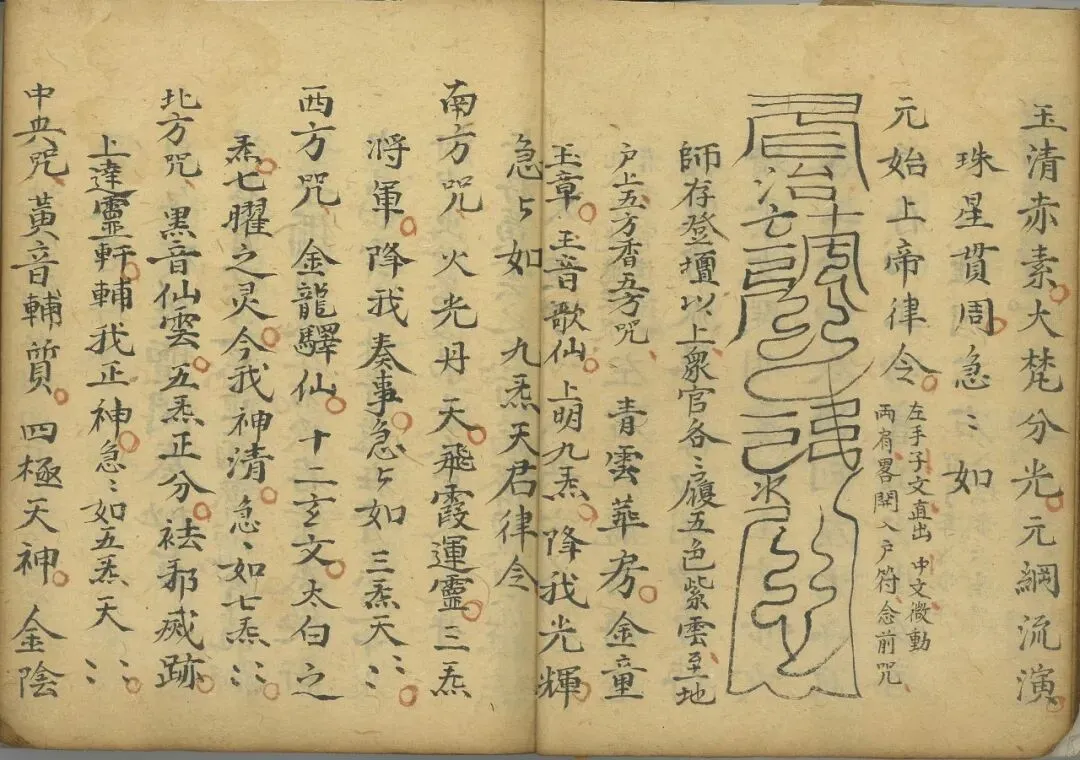 玉清赤素大梵分光元綱流演
珠星貫周急〻如
元始上帝律令
左手子文直出 中文微動
兩肩畧開入戶符念前咒
師存登壇以上衆官各〻履五色紫雲至地
戶上五方香五方咒 青雲華房金童
玉章玉音歌仙上明九炁降我光輝
急〻如 九炁天君律令
南方咒 火光丹天飛霞運靈三炁
將軍降我奏事急〻如 三炁天〻〻
西方咒 金龍驛仙十二玄文太白之
炁七曜之灵令我神清急〻如七炁〻〻
北方咒 黑音仙雲五炁正分袪邪滅跡
上達靈軒輔我正神急〻如五炁天〻〻
中央咒 黃音輔質四極天神金陰